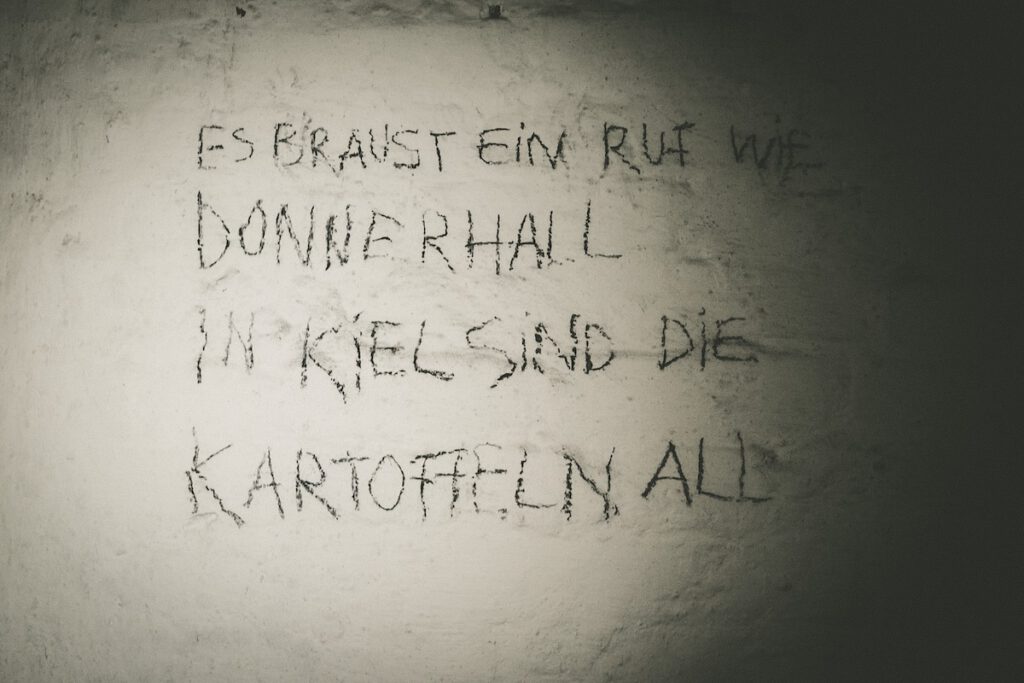 ES BRAUST EIN RUF WIE
DONNERHALL
IN KIEL SIND DIE
KARTOFFELN ALL